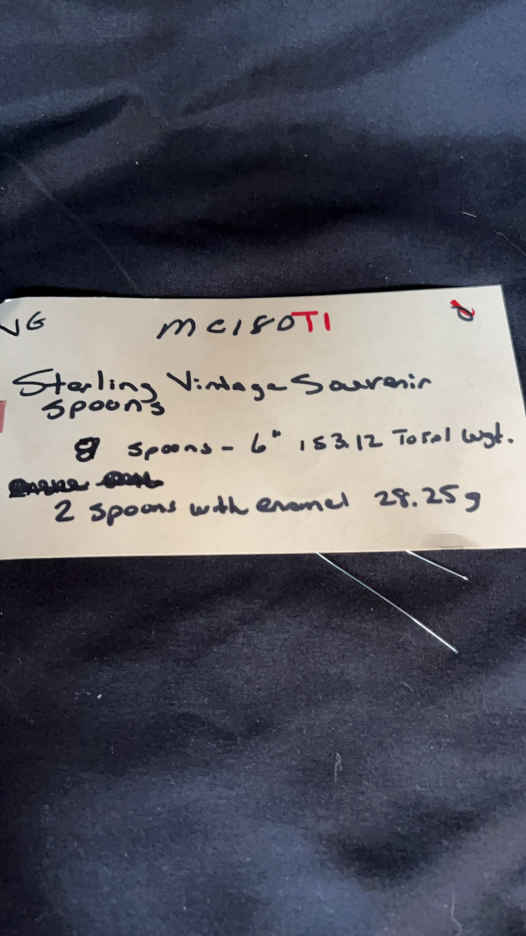 VG MC180T1
Sterling Vintage Souvenir
Spoons
8 Spoons - 6" 153.12 Total Wgt.
2 Spoons with enamel 28.25g